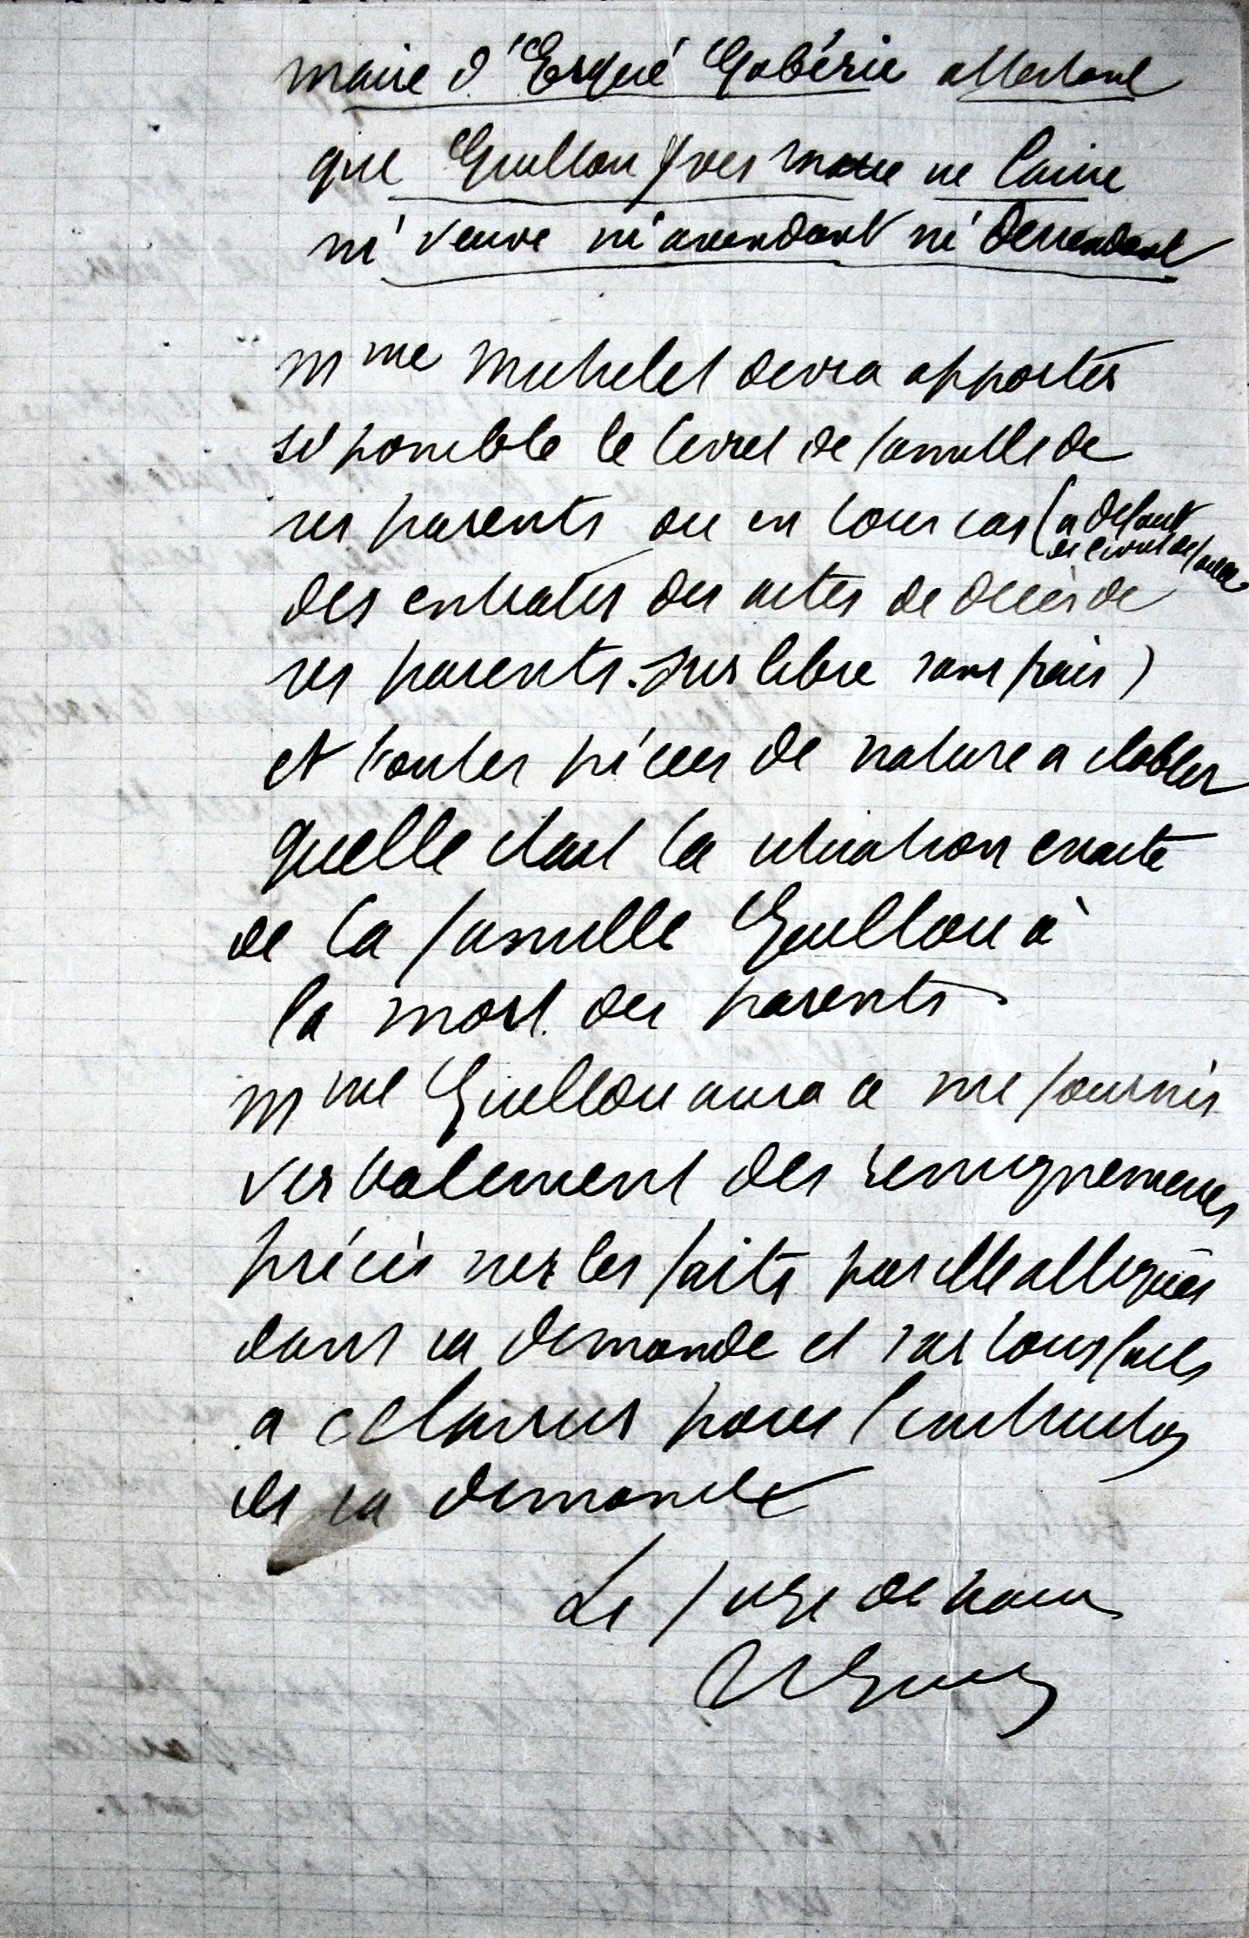 maire d'Ergué Gabéric attestant
que Guillou Yves Marie ne laisse
ni veuve ni ascendant ni descendant
Mme Michelet devra apporter
si possible le livret de famille de
ses parents ou en tous cas (a defaut
de livret de famille
des extraits des actes de décès de
ses parents. sur libre sans frais)
et toutes pièces de nature a etablir
quelle etait la situation exacte
de la famille Guillou à
la mort des parents
Mme Guillou aura a me fournir
verbalement des renseignements
précis sur les faits par elle allegués
dans sa demande et sur tous faits
a eclaircir pour l'instruction
de sa demande
Le Juge de paix